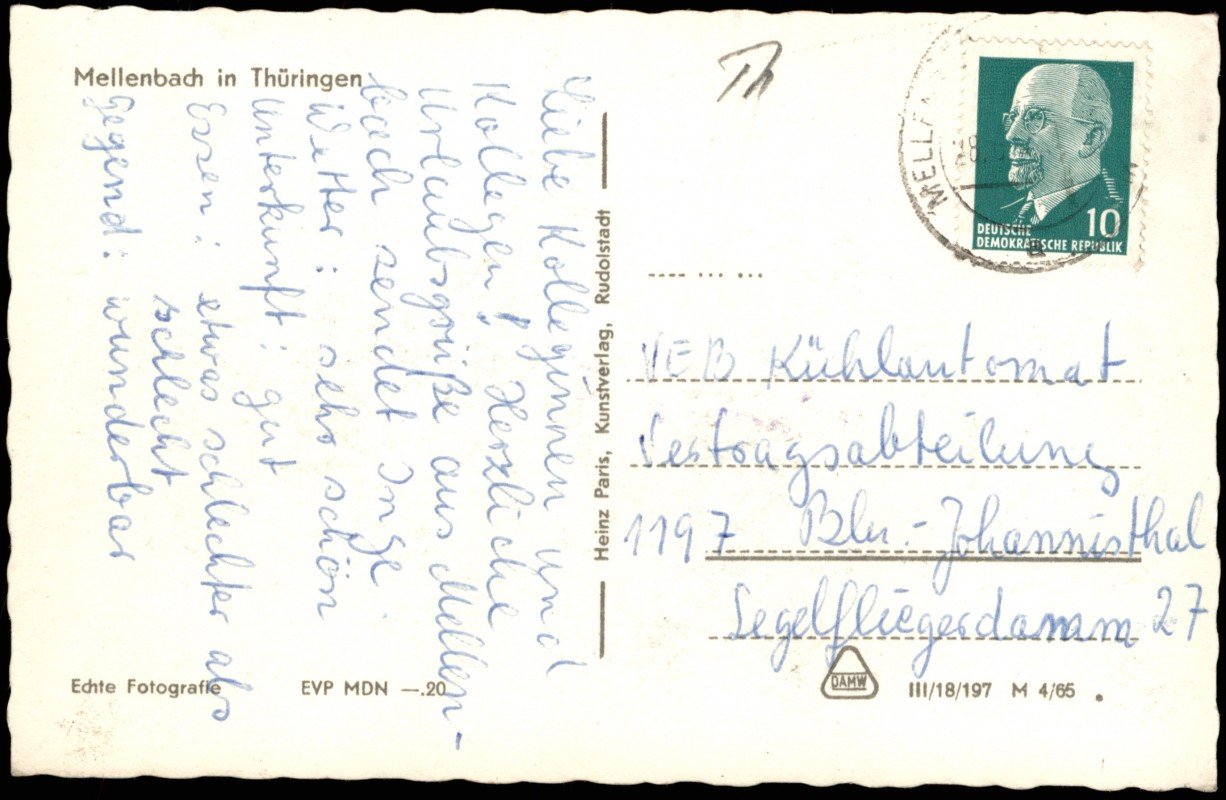 Mellenbach in Thüringen
Liebe Kolleginnen und
Kollegen! Herzliche
Urlaubsgrüße aus Mellen-
bach sendet Inge
Wetter: sehr schön
Unterkunft: gut
Essen: etwas schlechter als
schlecht
Gegend: wunderbar
Echte Fotografie
EVP MDN —.20
Heinz Paris, Kunstverlag, Rudolstadt
Th
MELLE
10
DEUTSCHE
DEMOKRATISCHE REPUBLIK
VEB Kühlautomat
Vertragsabteilung
1197 Bln.-Johannisthal
Segelfliegerdamm 27
DAMW
III/18/197 M 4/65